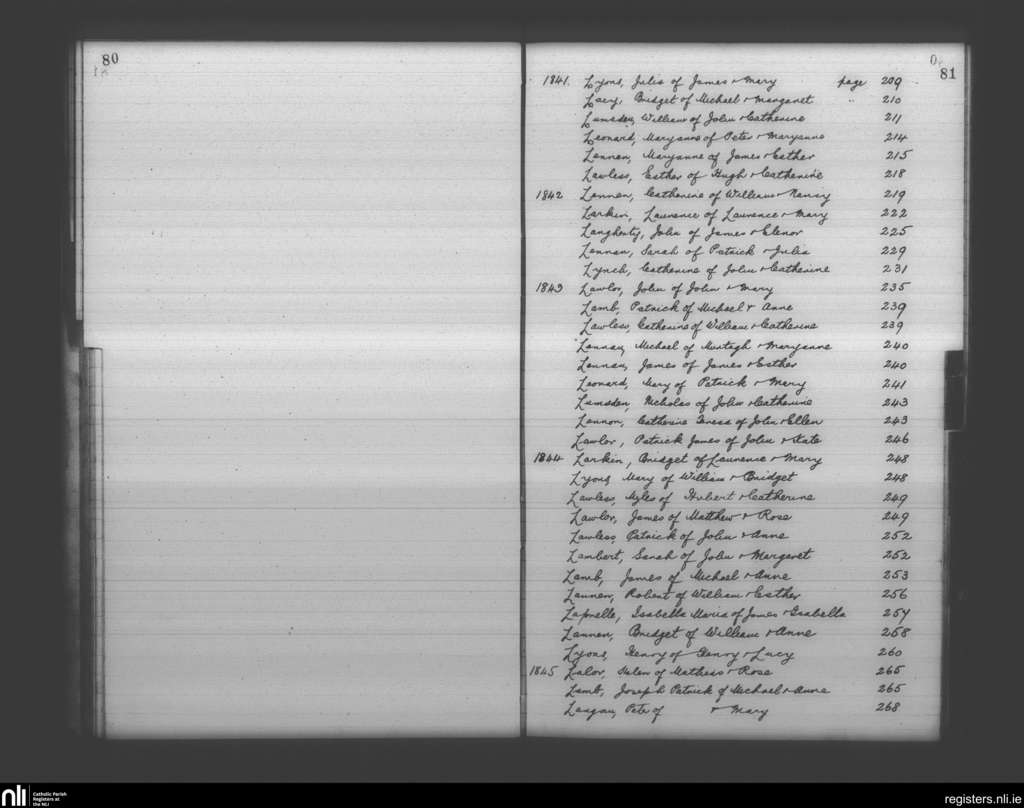 80
81
1841. Lyons, Julia of James & Mary page 209
Lacy, Bridget of Michael & Margaret " 210
Lumsden, William of John & Catherine 211
Leonard, Maryanne of Peter & Maryanne 214
Lennen, Maryanne of James & Esther 215
Lawless, Esther of Hugh & Catherine 218
1842 Lannen, Catherine of William & Nancy 219
Larkin, Laurence of Laurence & Mary 222
Langherty, John of James & Elenor 225
Lennen, Sarah of Patrick & Julia 229
Lynch, Catherine of John & Catherine 231
1843 Lawlor, John of John & Mary 235
Lamb, Patrick of Michael & Anne 239
Lawless, Catherine of William & Catherine 239
Lannan, Michael of Murtagh & Maryanne 240
Lennan, James of James & Esther 240
Leonard, Mary of Patrick & Mary 241
Lumsden, Nicholas of John & Catherine 243
Lannon, Catherine Teresa of John & Ellen 243
Lawlor, Patrick James of John & Kate 246
1844 Larkin, Bridget of Laurence & Mary 248
Lyons, Mary of William & Bridget 248
Lawless, Myles of Hubert & Catherine 249
Lawlor, James of Matthew & Rose 249
Lawless, Patrick of John & Anne 252
Lambert, Sarah of John & Margaret 252
Lamb, James of Michael & Anne 253
Lannen, Robert of William & Esther 256
Isabella Maria of James & Isabella 257
Lannen, Bridget of William & Anne 258
Lyons, Henry of Henry & Lucy 260
1845 Lalor, Helen of Mathew & Rose 265
Lamb, Joseph Patrick of Michael & Anne 265
Langan, Peter of & Mary 268
nli Catholic Parish
Registers at
the NLI
registers.nli.ie